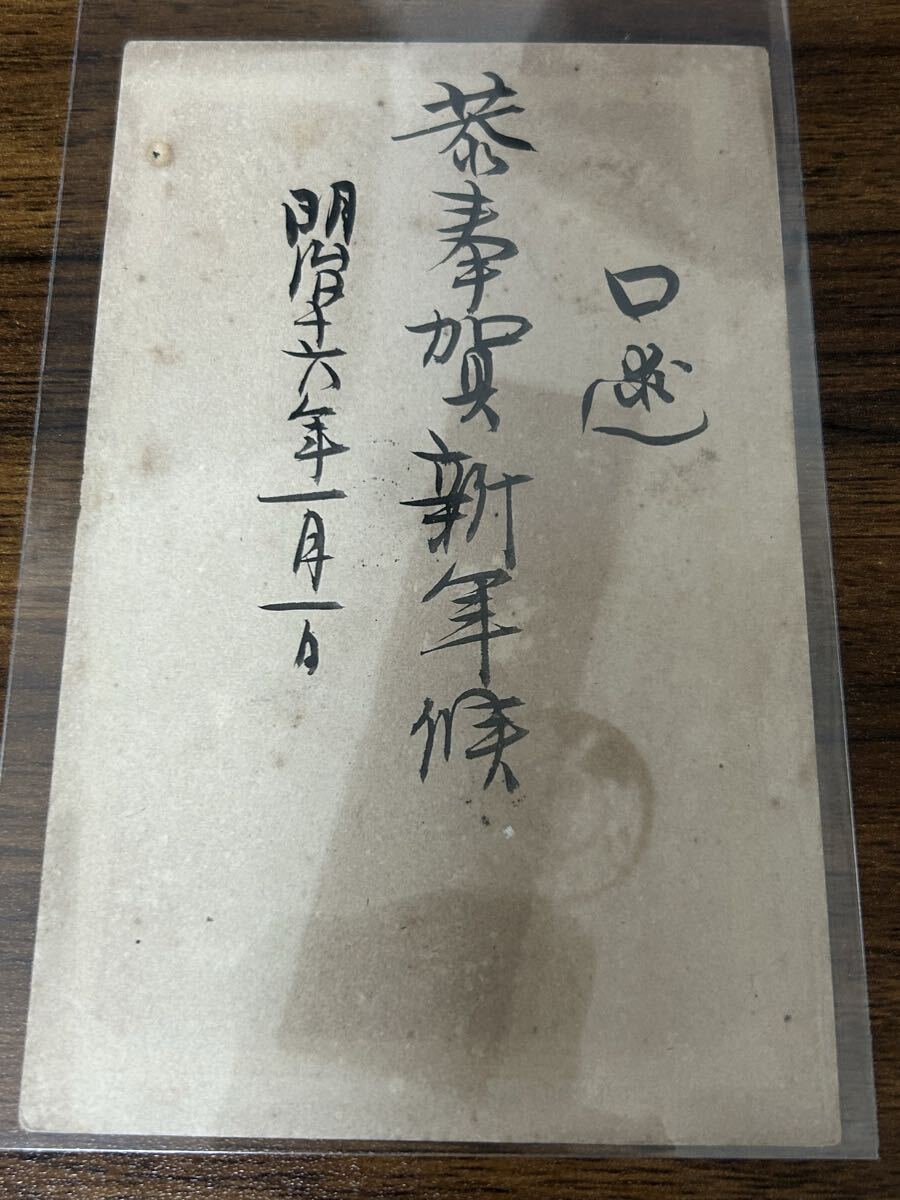 口述
恭奉賀新年候
明治十六年一月一日